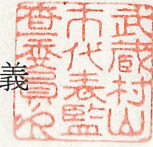 義
武蔵村山
市代表監
査委員之印